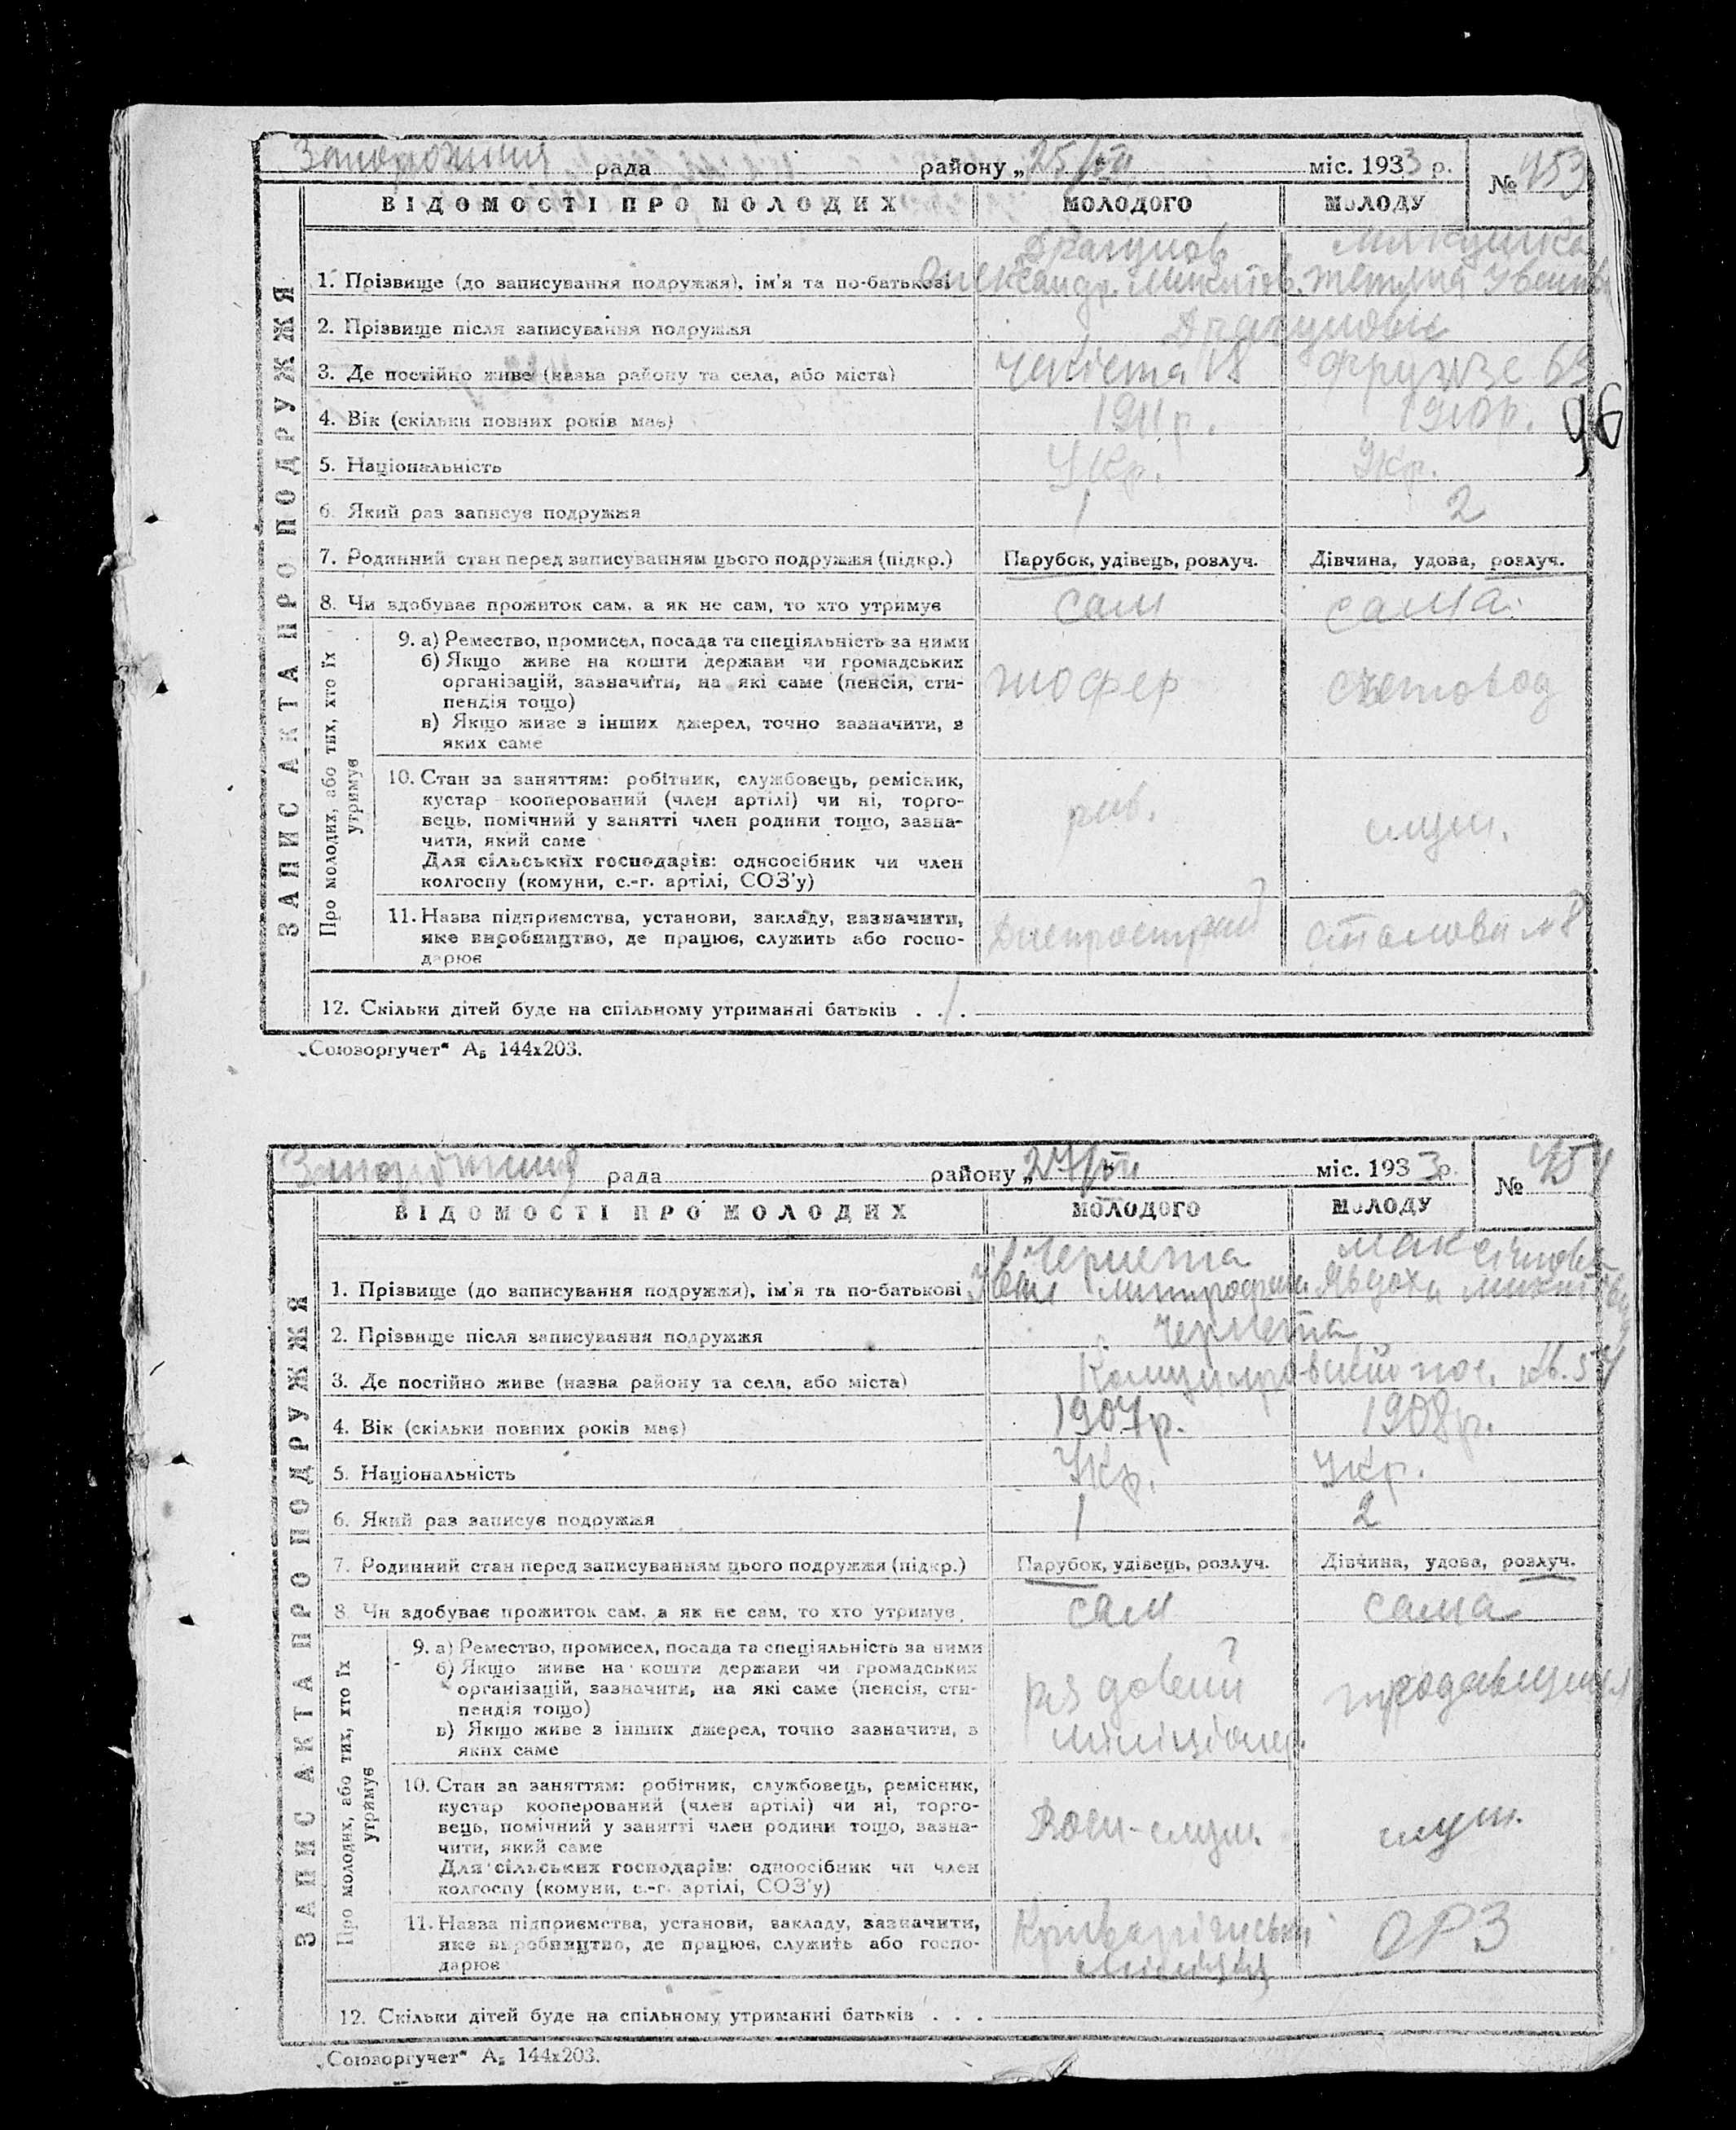 рада району „25/VII міс. 1933 р. № 453
ВІДОМОСТІ ПРО МОЛОДИХ МОЛОДОГО МОЛОДУ
ЗАПИС АКТА ПРО ПОДРУЖЖЯ
Драгунов
1. Прізвище (до записування подружжя), ім'я та по-батькові Олександр. Микитов. Тетяна Іванов
2. Прізвище після записування подружжя Драгунови
3. Де постійно живе (назва району та села, або міста) Чекіста 18 Фрунзе 69
4. Вік (скільки повних років має) 1911 р. 1910 р. 96
5. Національність Укр. Укр.
6. Який раз записує подружжя 1 2
7. Родинний стан перед записуванням цього подружжя (підкр.) Парубок, удівець, розлуч. Дівчина, удова, розлуч.
8. Чи здобуває прожиток сам, а як не сам, то хто утримує сам сама
Про молодих, або тих, хто їх утримує
9. а) Ремество, промисел, посада та спеціяльність за ними
б) Якщо живе на кошти держави чи громадських
організацій, зазначити, на які саме (пенсія, сти- шофер счетовод
пендія тощо)
в) Якщо живе з інших джерел, точно зазначити, з
яких саме
10. Стан за заняттям: робітник, службовець, ремісник,
кустар кооперований (член артілі) чи ні, торго-
вець, помічний у занятті член родини тощо, зазна- роб. служ.
чити, який саме
Для сільських господарів: одноосібник чи член
колгоспу (комуни, с.-г. артілі, СОЗ'у)
11. Назва підприємства, установи, закладу, зазначити,
яке виробництво, де працює, служить або госпо- Днепрострой Столова № 8
дарює
12. Скільки дітей буде на спільному утриманні батьків . . . 1
„Союзоргучет" А₅ 144х203.
рада району „27/VII міс. 1933 р. № 454
ВІДОМОСТІ ПРО МОЛОДИХ МОЛОДОГО МОЛОДУ
ЗАПИС АКТА ПРО ПОДРУЖЖЯ
Чернета Максімова
1. Прізвище (до записування подружжя), ім'я та по-батькові Іван Митрофан. Явдоха
2. Прізвище після записування подружжя Чернета
3. Де постійно живе (назва району та села, або міста) пос. кв. 54
4. Вік (скільки повних років має) 1907 р. 1908 р.
5. Національність Укр. Укр.
6. Який раз записує подружжя 1 2
7. Родинний стан перед записуванням цього подружжя (підкр.) Парубок, удівець, розлуч. Дівчина, удова, розлуч.
8. Чи здобуває прожиток сам, а як не сам, то хто утримує сам сама
Про молодих, або тих, хто їх утримує
9. а) Ремество, промисел, посада та спеціяльність за ними
б) Якщо живе на кошти держави чи громадських
організацій, зазначити, на які саме (пенсія, сти- рядовий продавщиця
пендія тощо)
в) Якщо живе з інших джерел, точно зазначити, з міліціонер.
яких саме
10. Стан за заняттям: робітник, службовець, ремісник,
кустар кооперований (член артілі) чи ні, торго-
вець, помічний у занятті член родини тощо, зазна- Воен-служ. служ.
чити, який саме
Для сільських господарів: одноосібник чи член
колгоспу (комуни, с.-г. артілі, СОЗ'у)
11. Назва підприємства, установи, закладу, зазначити,
яке виробництво, де працює, служить або госпо- ОРЗ
дарює міліція
12. Скільки дітей буде на спільному утриманні батьків . . .
„Союзоргучет" А₅ 144х203.